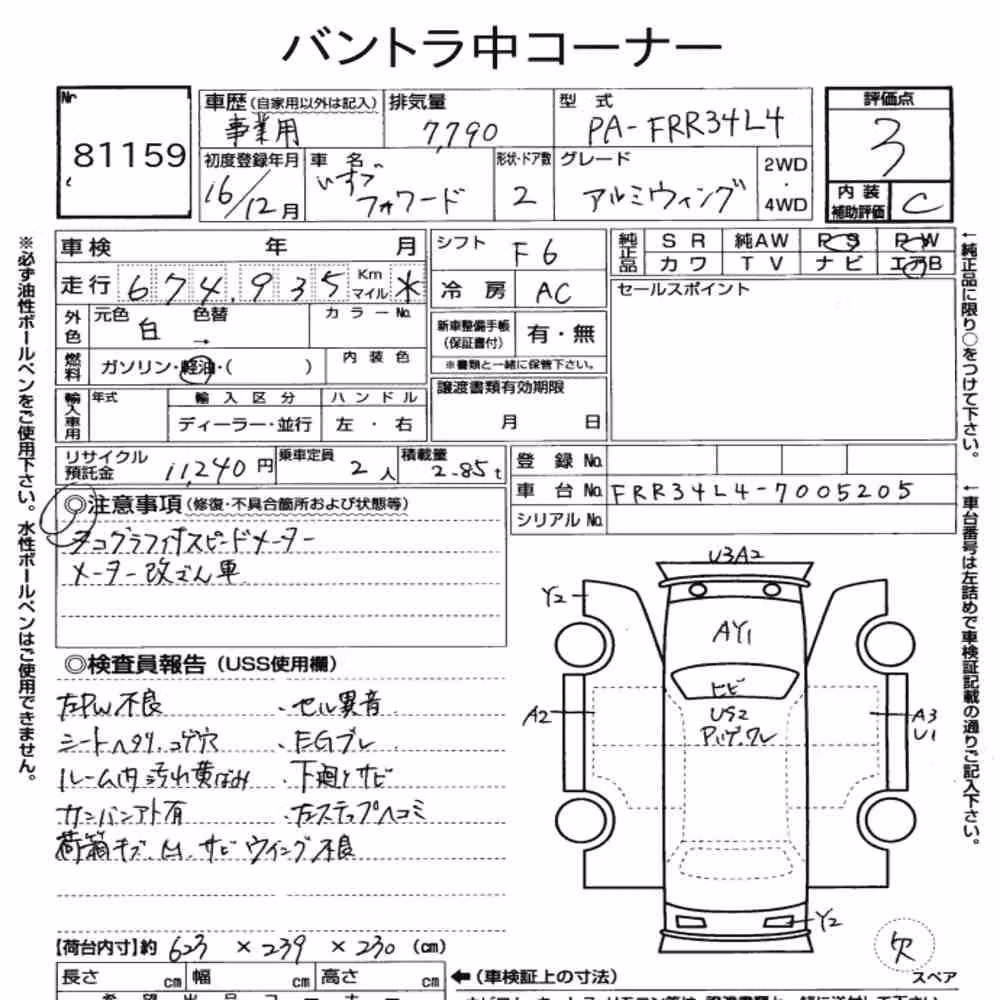 バントラ中コーナー
Nr 81159
車歴(自家用以外は記入) 事業用
排気量 7,790
型式 PA-FRR34L4
評価点 3
内装補助評価 C
初度登録年月 16/12月
車名 いすゞ フォワード
形状・ドア数 2
グレード アルミウィング
2WD・4WD
車検 年 月
シフト F6
純正品 SR 純AW PS PW
カワ TV ナビ エアB
走行 674,935 Km マイル *
冷房 AC
セールスポイント
外色 元色 白 色替 → カラーNo.
新車整備手帳(保証書付) 有・無
※書類と一緒に保管下さい。
燃料 ガソリン・軽油・( ) 内装色
譲渡書類有効期限 月 日
輸入車用 年式 輸入区分 ハンドル
ディーラー・並行 左・右
リサイクル預託金 11,240円
乗車定員 2人
積載量 2.85t
登録No.
車台No. FRR34L4-7005205
シリアルNo.
◎注意事項(修復・不具合箇所および状態等)
タコグラフ付スピードメーター
メーター改ざん車
◎検査員報告(USS使用欄)
左PW不良 ・セル異音
シートヘタリ、コゲ穴 ・EGブレ
ルーム内汚れ黄ばみ ・下廻りサビ
カンバンアト有 ・左ステップヘコミ
荷箱キズ、凹、サビ ウィング不良
【荷台内寸】約 623 × 239 × 230 (cm)
長さ cm 幅 cm 高さ cm
←(車検証上の寸法)
U3A2
Y2
AY1
ヒビ
US2
A2
A3
U1
Y2
欠
スペア
※必ず油性ボールペンをご使用下さい。水性ボールペンはご使用できません。
←純正品に限り○をつけて下さい。
←車台番号は左詰めで車検証記載の通りご記入下さい。